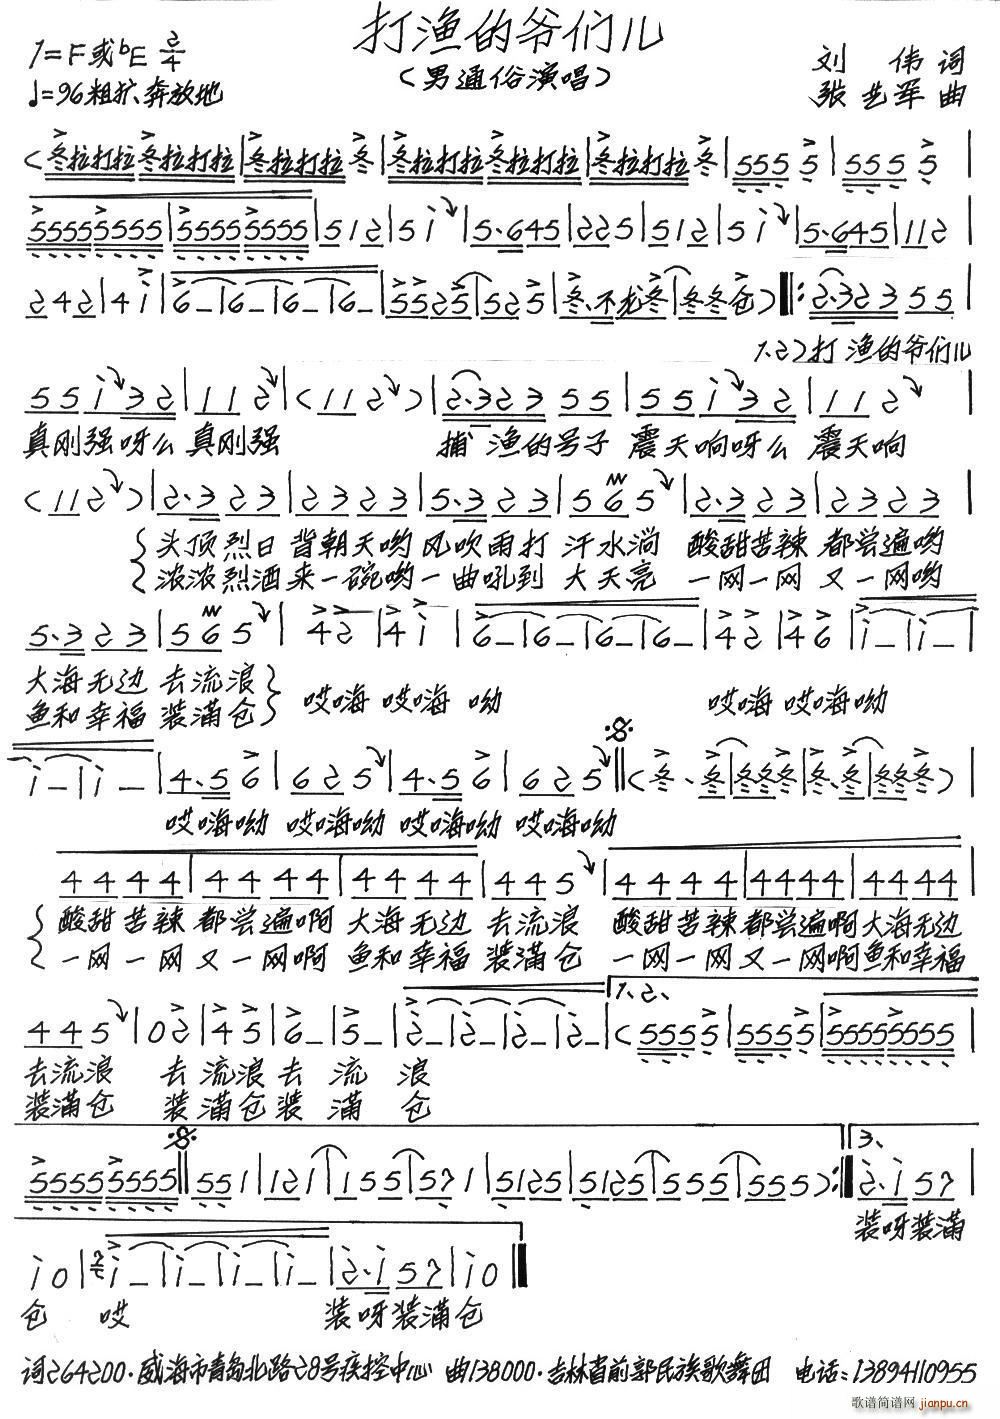 打渔的爷们儿
(男通俗演唱)
1=F或bE 2/4
♩=96粗犷、奔放地
刘 伟 词
张艺军 曲
(冬拉打拉冬拉打拉|冬拉打拉冬|冬拉打拉冬拉打拉|冬拉打拉冬|555 5|555 5|
55555555|55555555|512|5i|5·645|225|512|5i|5·645|112|
242|4i|6–|6–|6–|6–|5525|525|冬、不龙冬|冬冬仓)‖:2·323 55|
1、2)打 渔的爷们儿
55i32|112|(112)|2·323 55|55i32|112|
真刚强呀么 真刚强 捕 渔的号子 震天响呀么 震天响
(112)|2·323|2323|5·323|565|2·323|2323|
头顶烈日 背朝天哟 风吹雨打 汗水淌 酸甜苦辣 都尝遍哟
浓浓烈酒 来一碗哟 一曲吼到 大天亮 一网一网 又一网哟
5·323|565|42|4i|6–|6–|6–|6–|42|46|i–|i–|
大海无边 去流浪 哎嗨 哎嗨 呦 哎嗨 哎嗨呦
鱼和幸福 装满仓
i–|i–|4·56|625|4·56|625‖(冬、冬|冬冬冬|冬、冬|冬冬冬)|
哎嗨呦 哎嗨呦 哎嗨呦 哎嗨呦
4444|4444|4444|445|4444|4444|4444|
酸甜苦辣 都尝遍啊 大海无边 去流浪 酸甜苦辣都尝遍啊大海无边
一网一网 又一网啊 鱼和幸福 装满仓 一网一网又一网啊鱼和幸福
1、2、
445|02|45|6–|5–|2–|2–|2–|2–|(5555|5555|55555555|
去流浪 去 流浪 去 流 浪
装满仓 装 满仓 装 满 仓
55555555‖551|121|155|557 1|5125|5125|555|555):‖
3、
2·i57|
装呀装满
i0|i–|i–|i–|i–|2·i57|i0‖
仓 哎 装呀装满仓
词264200·威海市青岛北路28号疾控中心 曲138000·吉林省前郭民族歌舞团 电话:13894110955
歌谱简谱网
jianpu.cn